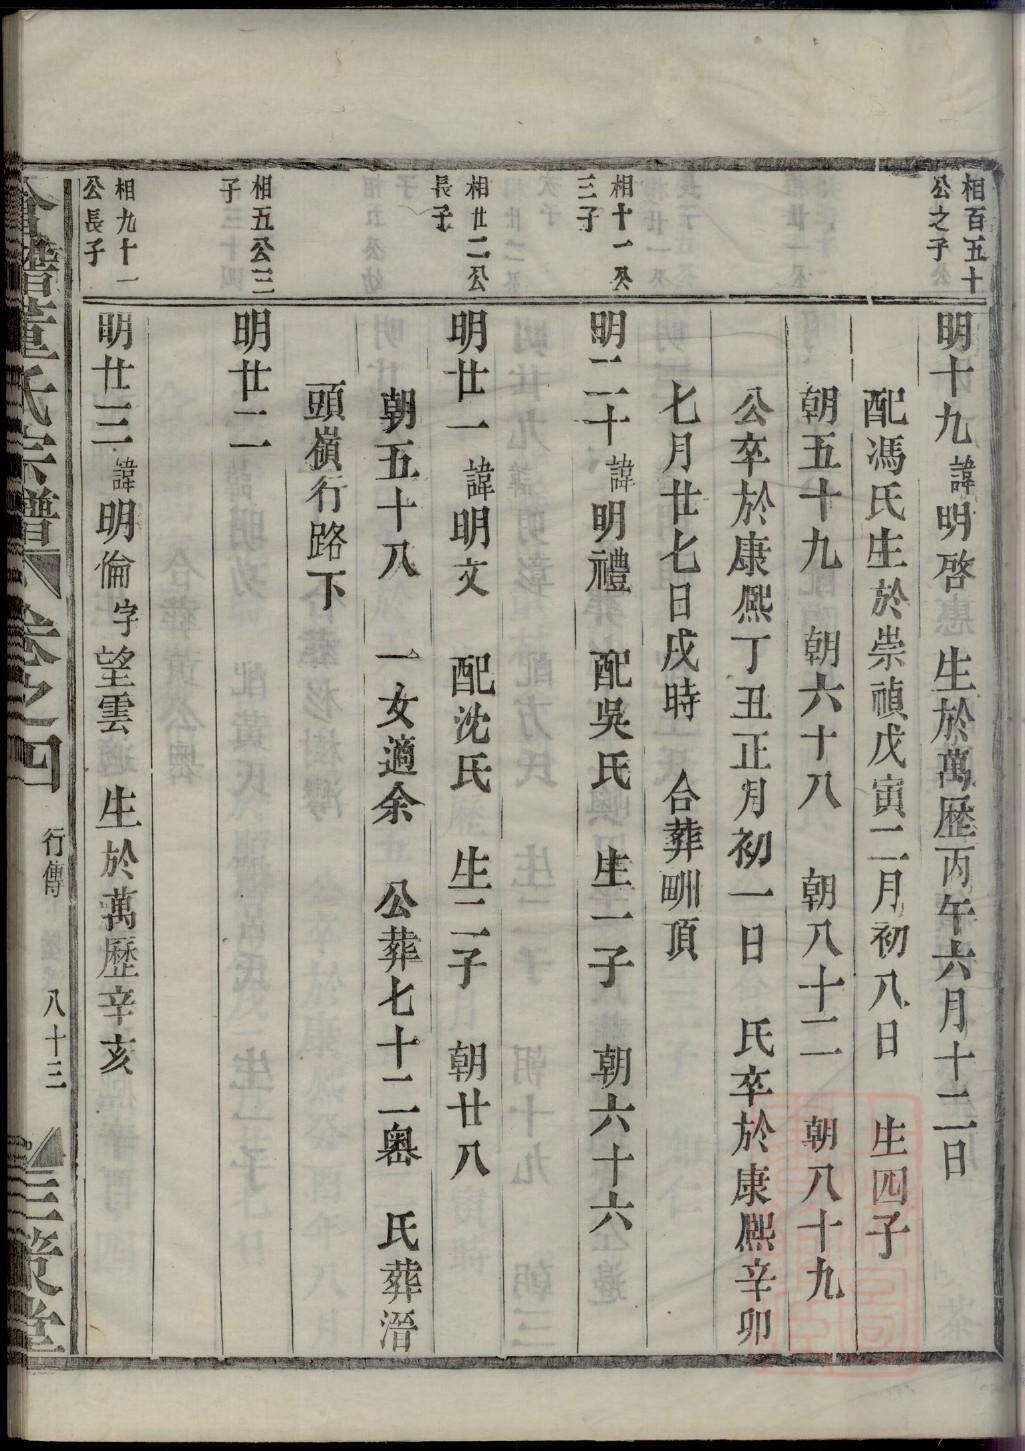 相百五十
公之子
明十九諱明啓 生於萬歷丙午六月十二日
配馮氏生於崇禎戊寅二月初八日 生四子
朝五十九 朝六十八 朝八十二 朝八十九
公卒於康熙丁丑正月初一日 氏卒於康熙辛卯
七月廿七日戌時 合葬𤰜頂
相十一公
三子
明二十諱明禮 配吳氏 生一子 朝六十六
相廿二公
長子
明廿一諱明文 配沈氏 生二子 朝廿八
朝五十八 一女適余 公葬七十二嶴 氏葬溍
頭嶺行路下
相五公三
子
明廿二
相九十一
公長子
明廿三諱明倫字望雲 生於萬歷辛亥
董氏宗譜 卷之四 行傳 八十三 三策堂